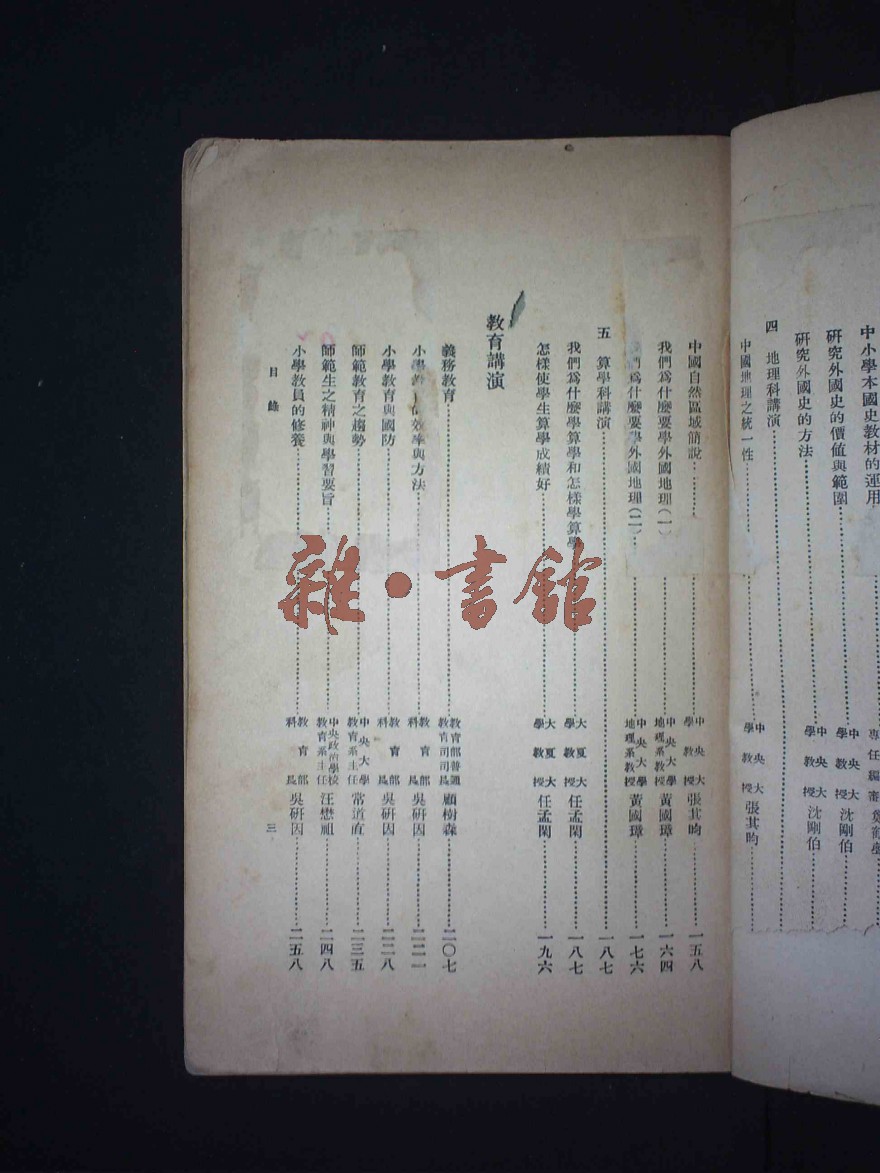 中小學本國史教材的運用
專任編審
研究外國史的價值與範圍 中央大學教授 沈剛伯
研究外國史的方法 中央大學教授 沈剛伯
四 地理科講演
中國地理之統一性 中央大學教授 張其昀
中國自然區域簡說 中央大學教授 張其昀 一五八
我們爲什麼要學外國地理(一) 中央大學地理系教授 黃國璋 一六四
我們爲什麼要學外國地理(二) 中央大學地理系教授 黃國璋 一七六
五 算學科講演 一八七
我們爲什麼學算學和怎樣學算學 大夏大學教授 任孟閑 一八七
怎樣使學生算學成績好 大夏大學教授 任孟閑 一九六
教育講演
義務教育 教育部普通教育司司長 顧樹森 二〇七
小學 效率與方法 教育部科長 吳研因 二二一
小學教育與國防 教育部科長 吳研因 二二八
師範教育之趨勢 中央大學教育系主任 常道直 二三五
師範生之精神與學習要旨 中央政治學校教育系主任 汪懋祖 二四八
小學教員的修養 教育部科長 吳研因 二五八
目錄
三
雜·書館